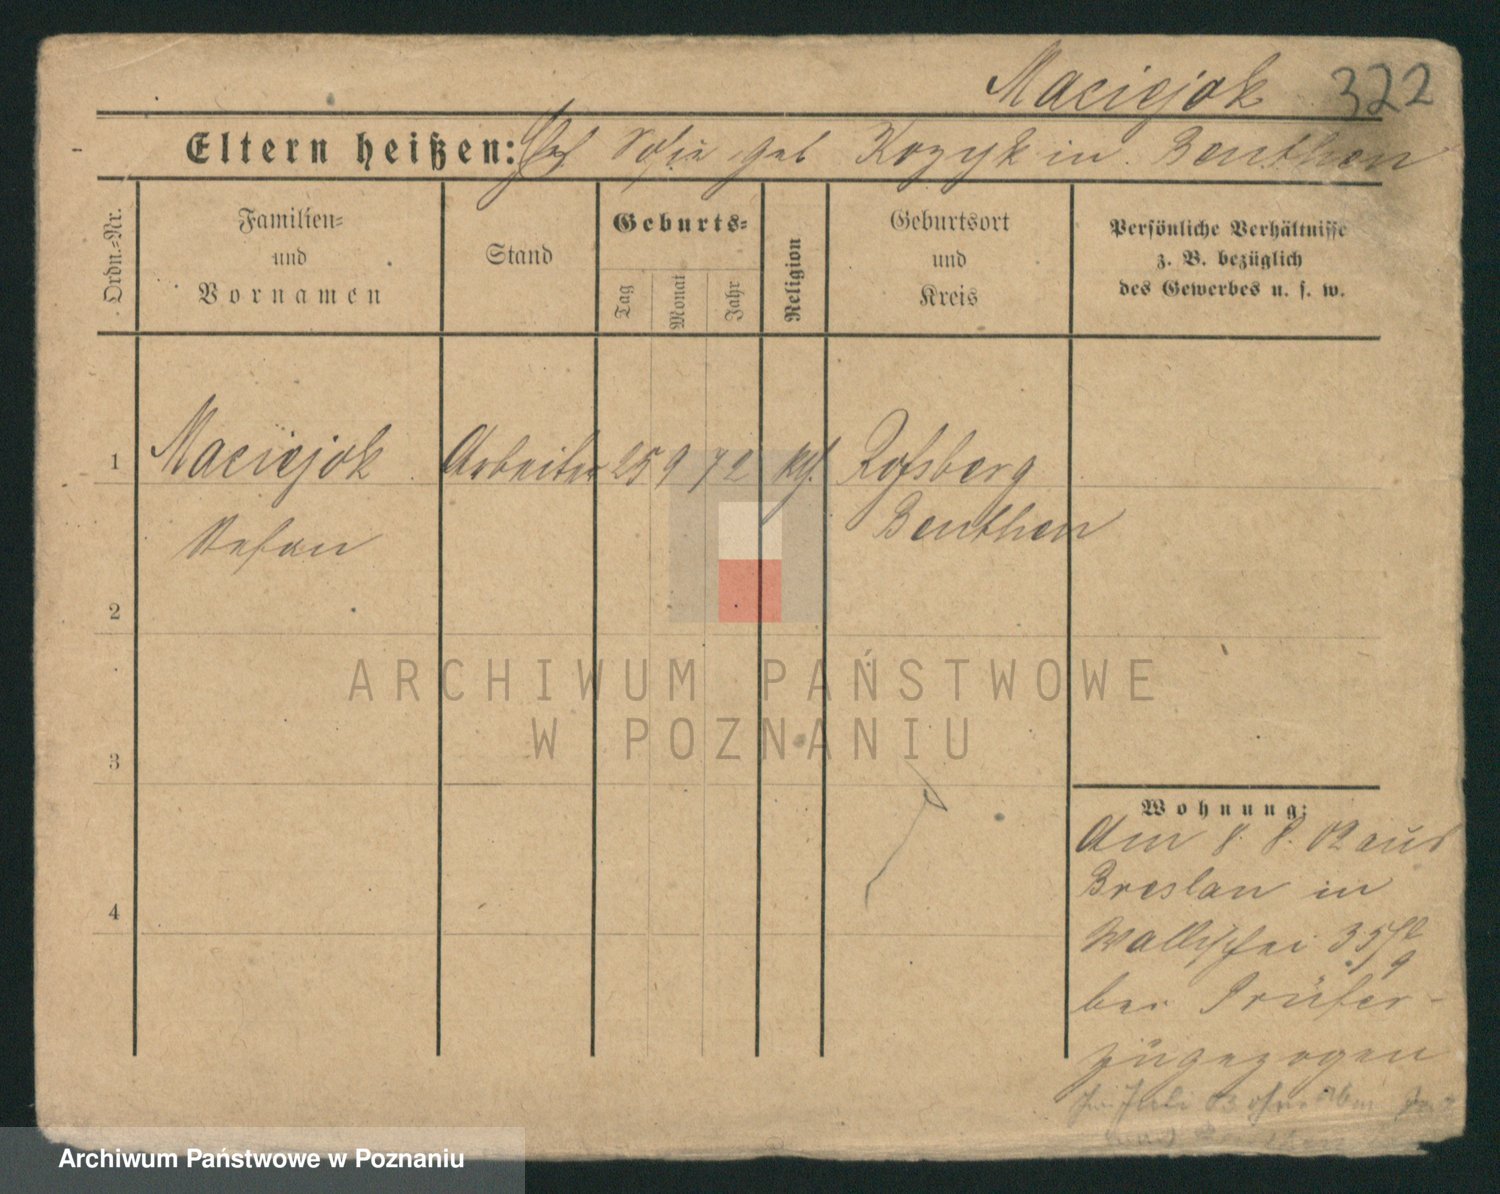 Maciejok 322
Eltern heißen: geb Kozyk in Beuthen
Ordn.=Nr.
Familien=
und
Vornamen
Stand
Geburts=
Tag
Monat
Jahr
Religion
Geburtsort
und
Kreis
Persönliche Verhältnisse
z. B. bezüglich
des Gewerbes u. s. w.
1 Maciejok Arbeiter 25 9 72 kth. Roßberg
Stefan Beuthen
2
3
4
ARCHIWUM PAŃSTWOWE
W POZNANIU
Wohnung:
Am 8. 8. 02 aus
Breslau in
Wallischei 35
bei Prüfer
zugezogen
Juli 03 ohne Abm
Archiwum Państwowe w Poznaniu